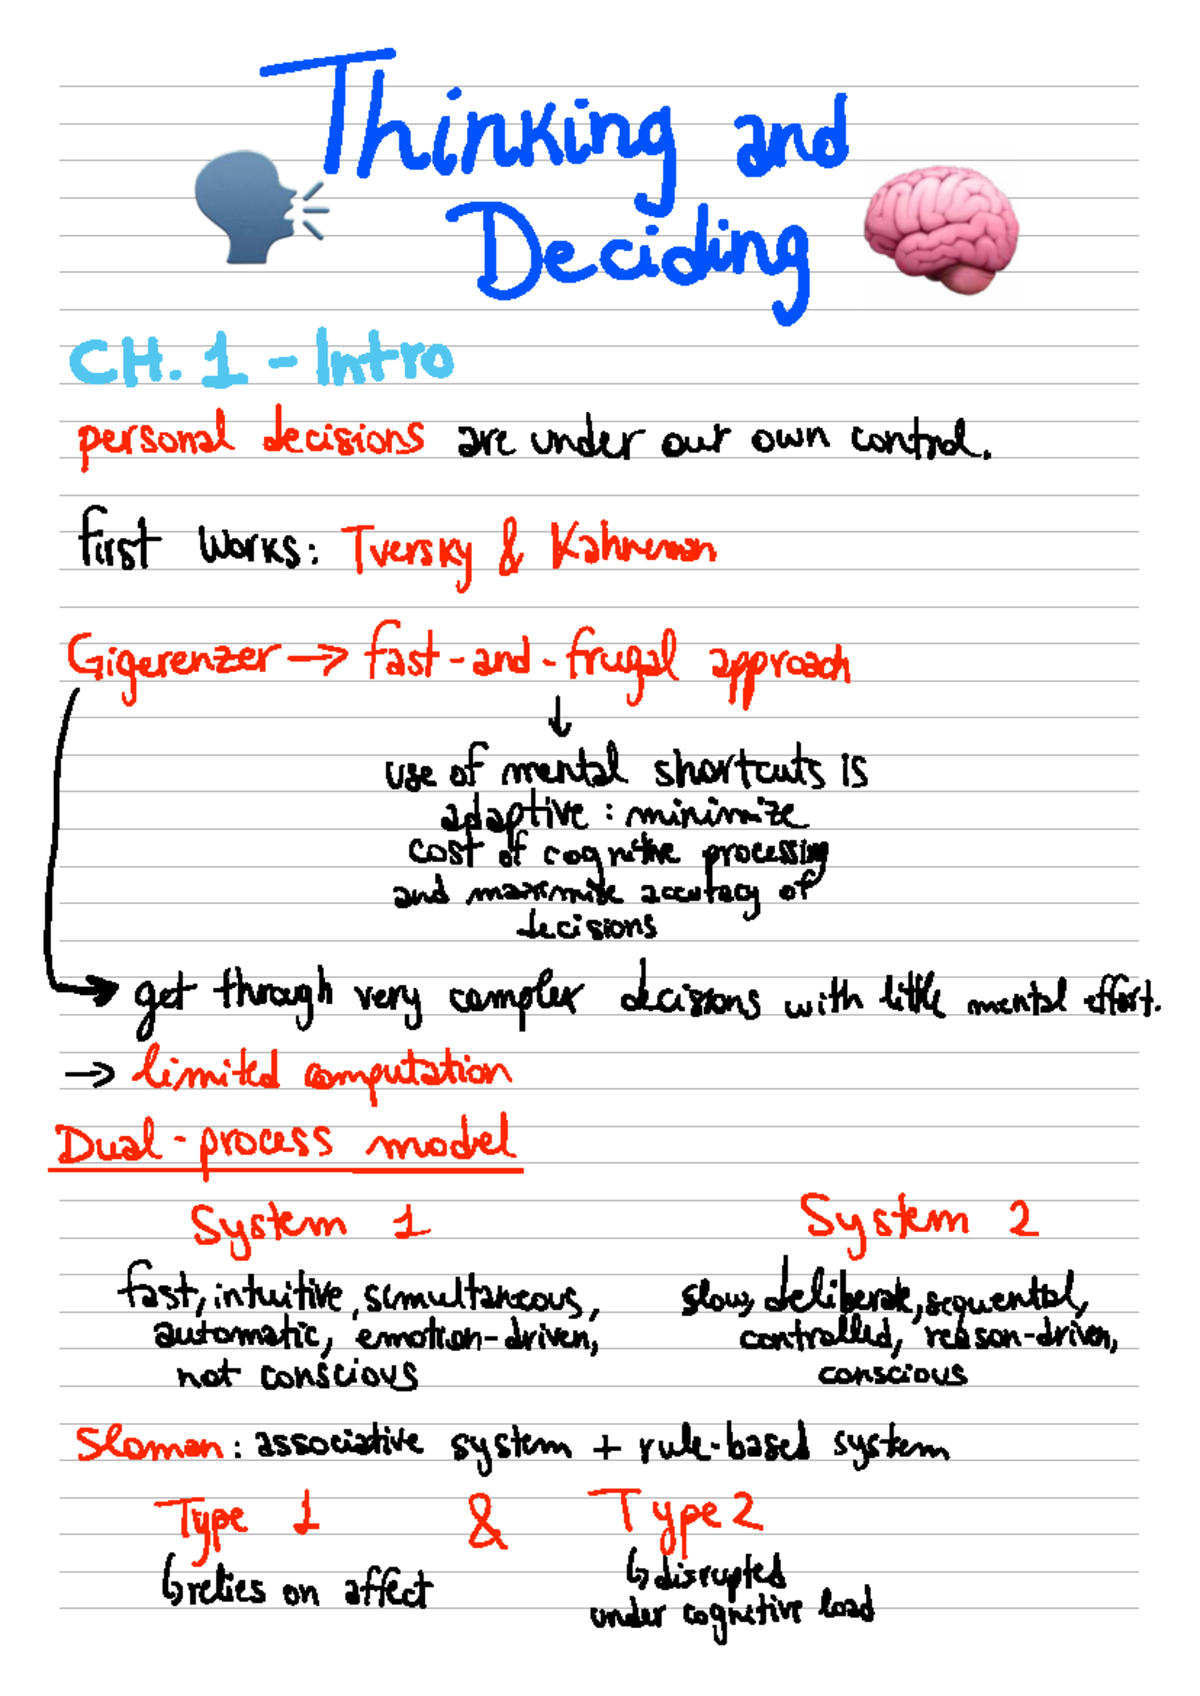 Thinking and
Deciding
CH. 1 - Intro
personal decisions are under our own control.
first works: Tversky & Kahneman
Gigerenzer → fast-and-frugal approach
↓
use of mental shortcuts is
adaptive: minimize
cost of cognitive processing
and maximize accuracy of
decisions
→ get through very complex decisions with little mental effort.
→ limited computation
Dual-process model
System 1 System 2
fast, intuitive, simultaneous, slow, deliberate, sequential,
automatic, emotion-driven, controlled, reason-driven,
not conscious conscious
Sloman: associative system + rule-based system
Type 1 & Type 2
↳ relies on affect ↳ disrupted
under cognitive load